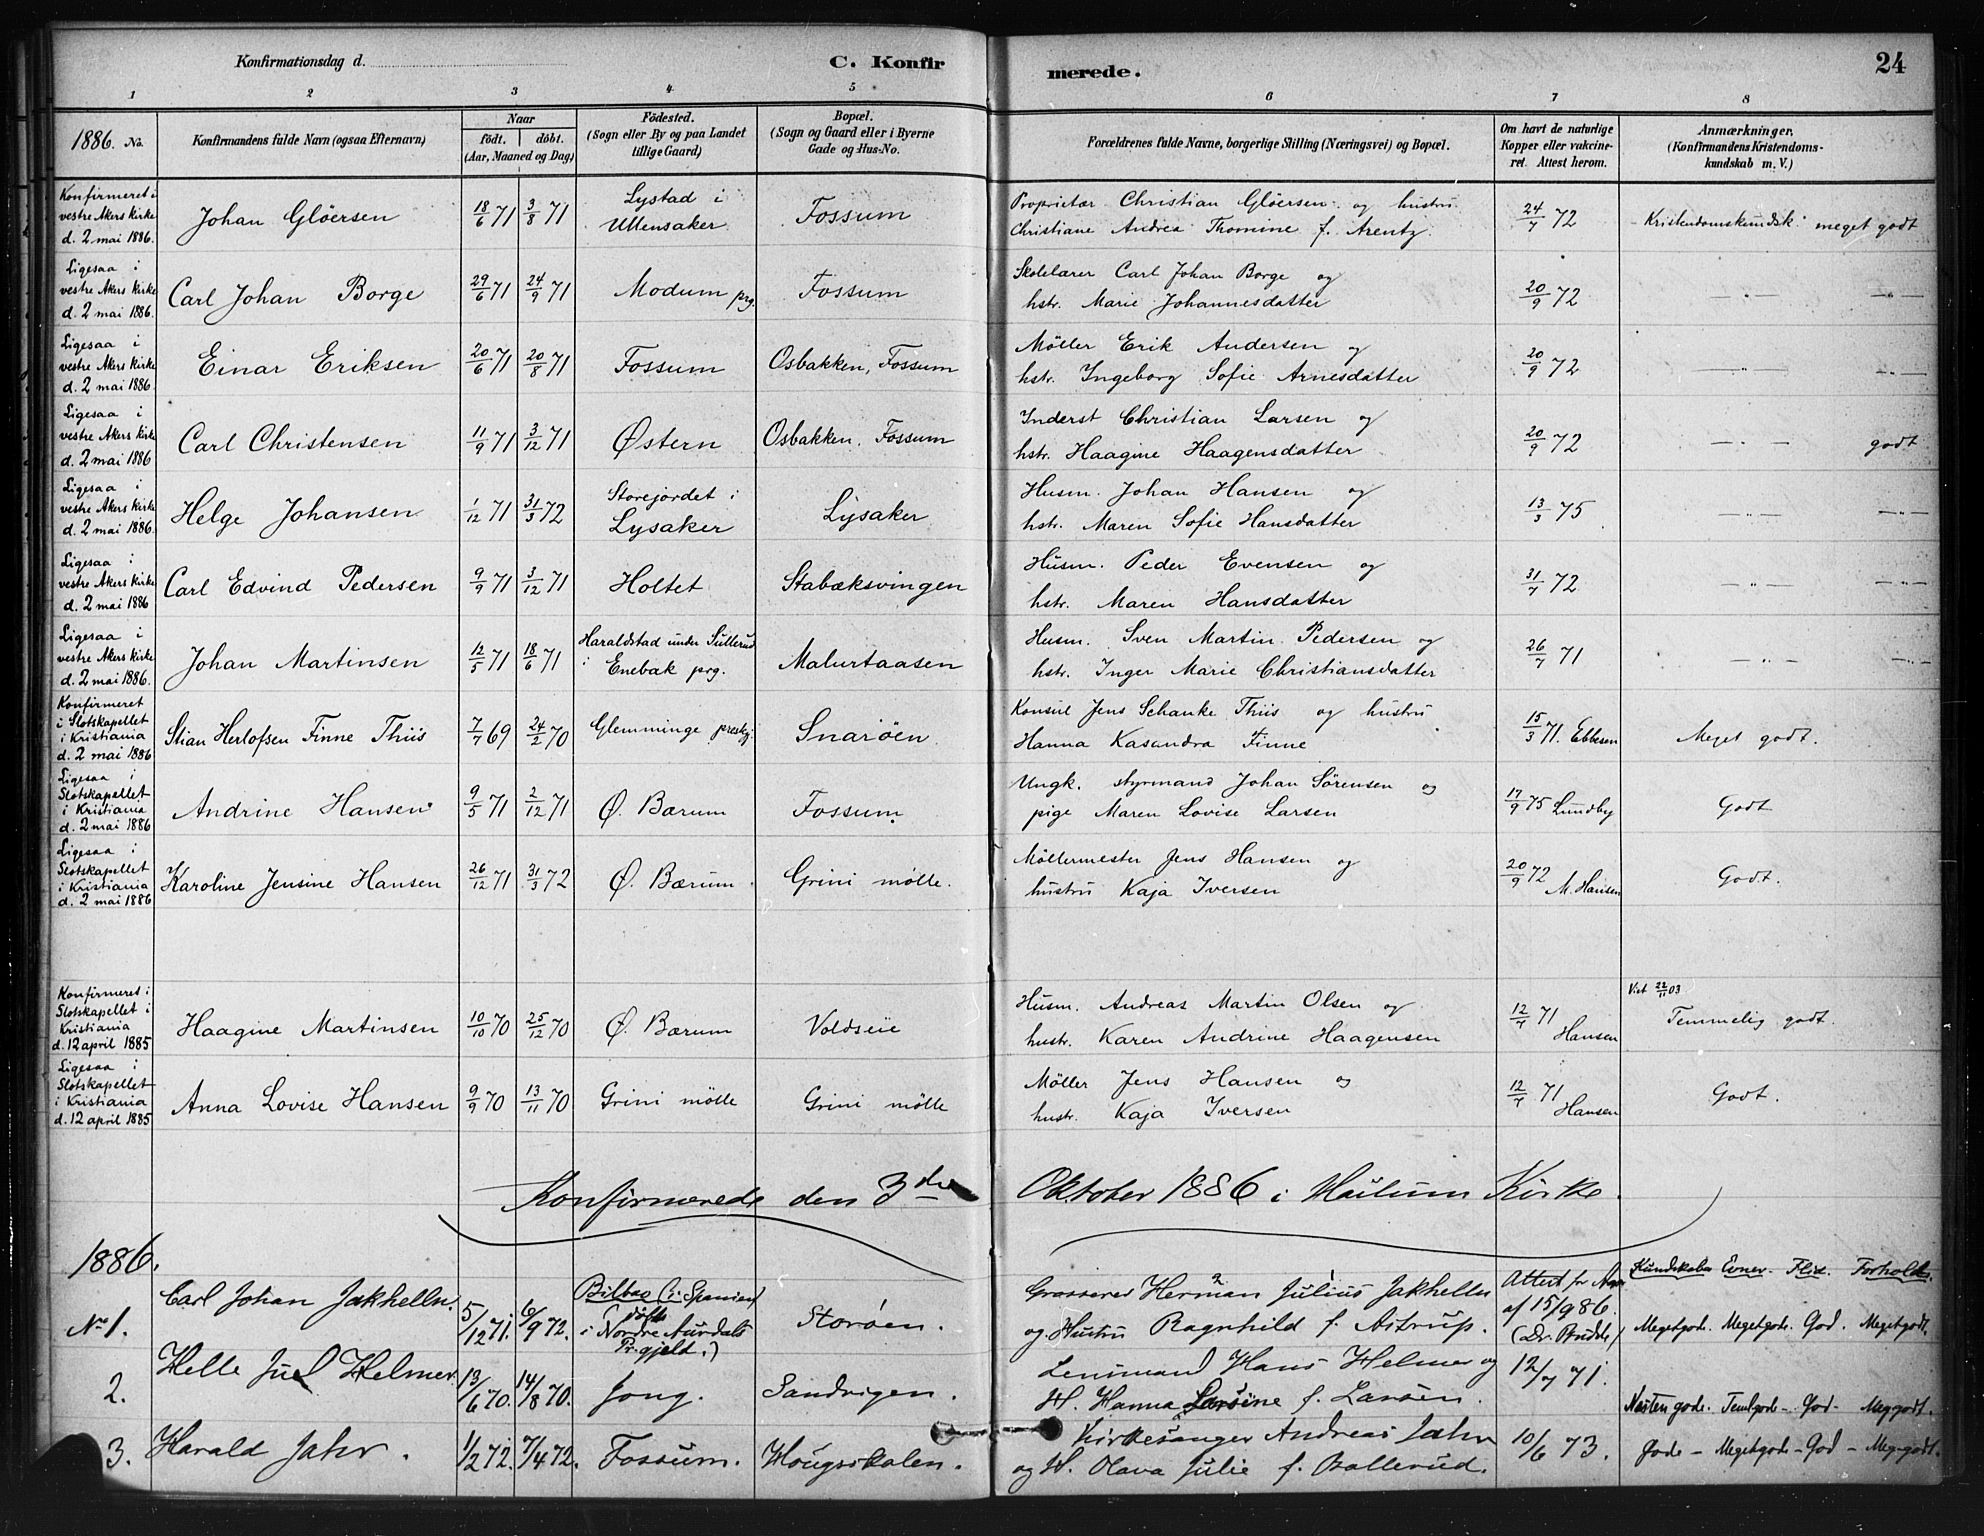 Konfirmationsdag d.
C. Konfir
merede.
24
1 2 3 4 5 6 7 8
1886. No.
Konfirmandens fulde Navn (ogsaa Efternavn)
Naar
födt. döbt.
(Aar, Maaned og Dag)
Födested.
(Sogn eller By og paa Landet
tillige Gaard)
Bopæl.
(Sogn og Gaard eller i Byerne
Gade og Hus-No.
Forældrenes fulde Navne, borgerlige Stilling (Næringsvei) og Bopæl.
Om havt de naturlige
Kopper eller vakcine-
ret. Attest herom.
Anmærkninger.
(Konfirmandens Kristendoms-
kundskab m. V.)
Konfirmeret i
vestre Akers kirke
d. 2 mai 1886.
Johan Glöersen
18/6 71
3/8 71
Lystad i
Ullensaker
Fossum
Proprietær Christian Glöersen og hustru
Christiane Andrea Thomine f. Arentz.
24/7 72
Kristendomskundsk. meget godt
Ligesaa i
vestre Akers kirke
d. 2 mai 1886.
Carl Johan Borge
29/6 71
24/9 71
Modum prg.
Fossum
Skolelærer Carl Johan Borge og
hstr. Marie Johannesdatter
20/9 72
— " — — " —
Ligesaa i
vestre Akers kirke
d. 2 mai 1886.
Einar Eriksen
20/6 71
20/8 71
Fossum
Osbakken, Fossum
Möller Erik Andersen og
hstr. Ingeborg Sofie Arnesdatter
20/9 72
— " — — " —
Ligesaa i
vestre Akers kirke
d. 2 mai 1886
Carl Christensen
11/9 71
3/12 71
Østern
Osbakken. Fossum
Inderst Christian Larsen og
hstr. Haagine Haagensdatter
20/9 72
— " — godt
Ligesaa i
vestre Akers kirke
d. 2 mai 1886.
Helge Johansen
1/12 71
31/3 72
Storejordet i
Lysaker
Lysaker
Husm. Johan Hansen og
hstr. Maren Sofie Hansdatter
13/3 75
— " — — " —
Ligesaa i
vestre Akers kirke
d. 2 mai 1886
Carl Edvind Pedersen
9/9 71
3/12 71
Holtet
Stabæksvingen
Husm. Peder Evensen og
hstr. Maren Hansdatter
31/7 72
— " — — " —
Ligesaa i
vestre Akers kirke
d. 2 mai 1886.
Johan Martinsen
12/5 71
18/6 71
Haraldstad under Sullerud
i Enebak prg.
Malurtaasen
Husm. Sven Martin Pedersen og
hstr. Inger Marie Christiansdatter
26/7 71
— " — — " —
Konfirmeret
i Slotskapellet
i Kristiania
d. 2 mai 1886
Stian Herlofsen Finne Thiis
7/7 69
24/2 70
Glemminge prestgj.
Snaröen
Konsul Jens Schanke Thiis og hustru
Hanna Kasandra Finne
15/3 71. Ebbesen
Meget godt.
Ligesaa i
Slotskapellet
i Kristiania
d. 2 mai 1886
Andrine Hansen
9/5 71
2/12 71
Ø. Bærum
Fossum
Ungk. styrmand Johan Sörensen og
pige Maren Lovise Larsen
17/9 75 Lundby
Godt
Ligesaa i
Slotskapellet
i Kristiania
d. 2 mai 1886
Karoline Jensine Hansen
26/12 71
31/3 72
Ø. Bærum
Grini mölle.
Möllermester Jens Hansen og
hustru Kaja Iversen
20/9 72 M. Hansen
Godt.
Konfirmeret i
Slotskapellet i
Kristiania
d. 12 april 1885
Haagine Martinsen
10/10 70
25/12 70
Ø. Bærum
Voldseie
Husm. Andreas Martin Olsen og
hustr. Karen Andrine Haagensen
12/7 71
Hansen
Vist 22/11 03
Temmelig godt.
Ligesaa i
Slotskapellet
i Kristiania
d. 12 april 1885
Anna Lovise Hansen
9/9 70
13/11 70
Grini mölle
Grini mölle
Möller Jens Hansen og
hustr. Kaja Iversen
12/7 71
Hansen
Godt.
Konfirmerede den 3die Oktober 1886 i Haslum Kirke.
1886.
Kundskaber Evner. Flid. Forhold.
No 1.
Carl Johan Jakhelln.
5/12 71.
6/9 72.
Bilbao (i Spanien)
döbt
i Nordre Aurdals
Pr.gjeld.)
Storöen.
Grosserer Herman Julius Jakhelln
og Hustru Ragnhild f. Astrup.
af 15/9 86.
Megetgode. Megetgode. God. Megetgodt.
2.
Helle Juel Helmer
13/6 70.
14/8 70.
Jong.
Sandvigen.
Lensmand Hans Helmer og
H. Hanna Larsine f. Larsen.
12/7 71.
Næsten gode. Temlgode - God - Meggodt.
3.
Harald Jahr.
1/2 72.
7/4 72.
Fossum.
Haugsskolen.
Kirkesanger Andreas Jahr
og H. Olava Julie f. Ballerud.
10/6 73.
Gode - Megetgode - God - Meggodt.